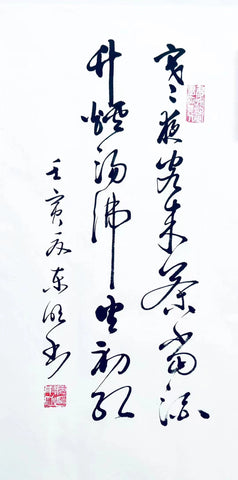 寒夜客来茶当酒
竹炉汤沸火初红
壬寅夏东书